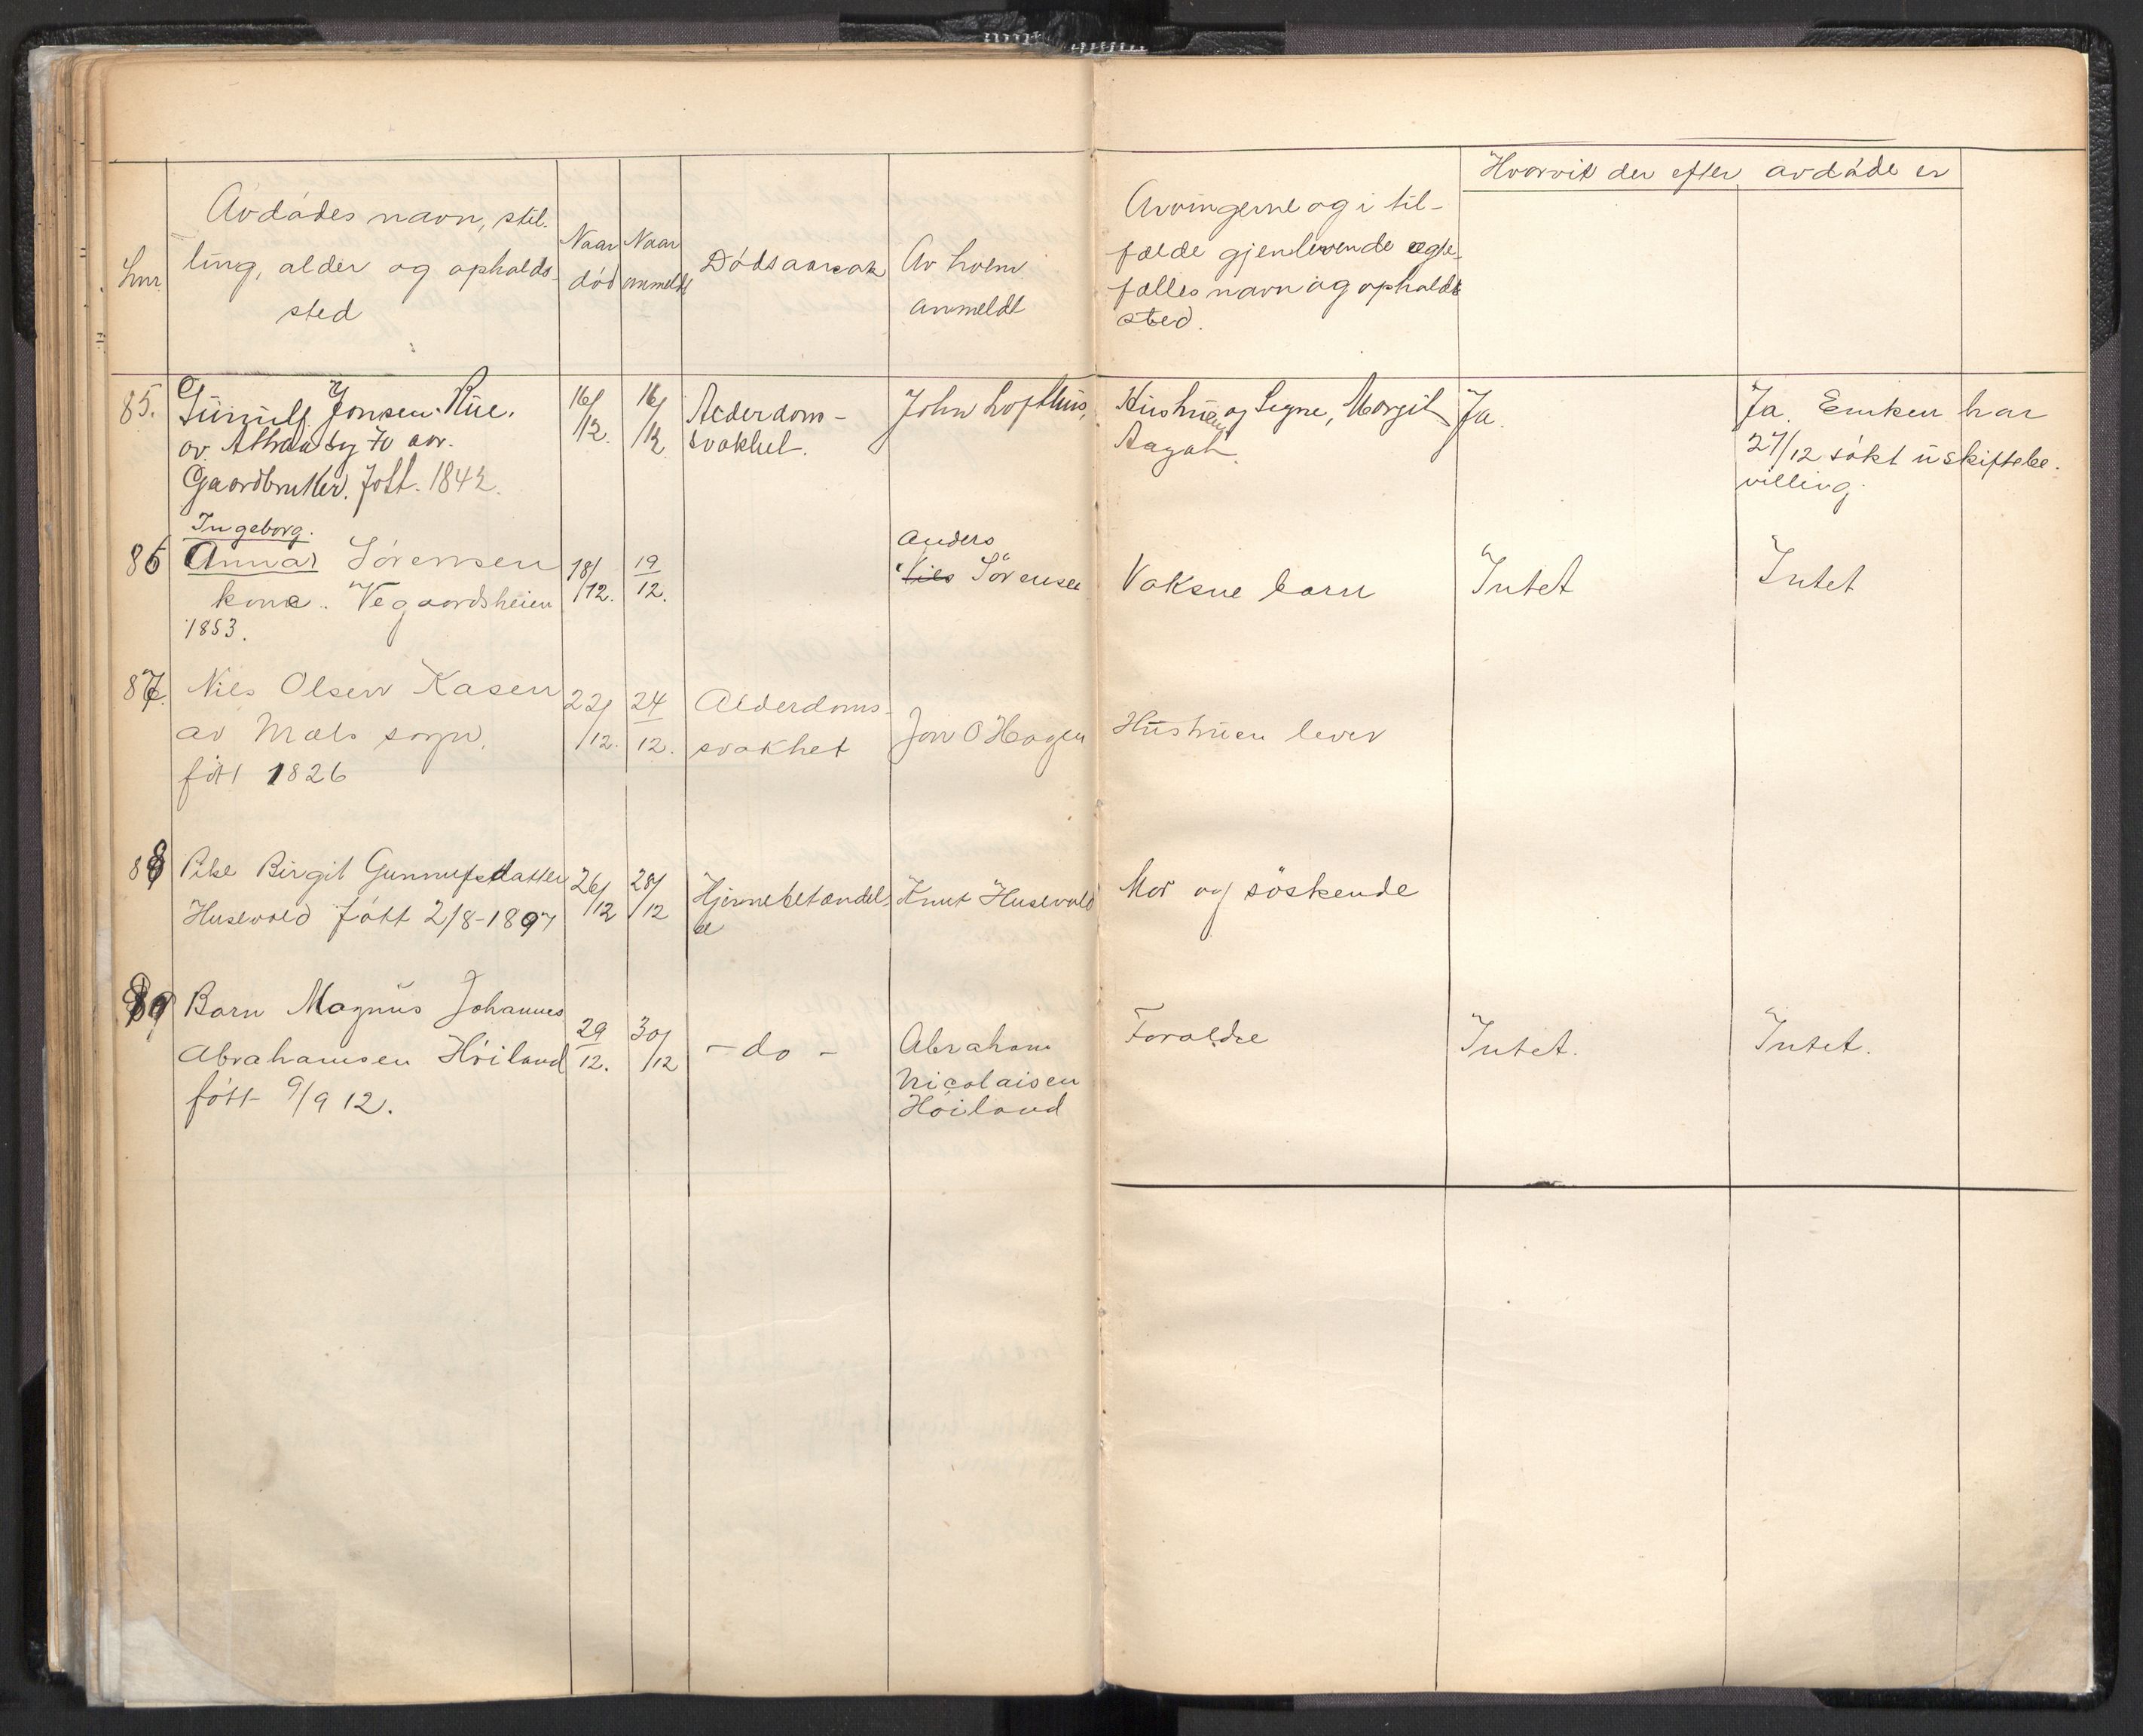 Lnr.
Avdødes navn, stil-
ling, alder og opholds-
sted
Naar
død
Naar
anmeldt
Dødsaarsak
Av hvem
anmeldt
Arvingerne og i til-
fælde gjenlevende ægte-
fælles navn og opholds
sted.
Hvorvit der efter avdøde er
85.
Gunulf Jonsen Rue.
av Atraa sg 70 aar.
Gaardbruker. Født. 1842.
16/12.
16/12
Alderdoms-
svakhet.
John Lofthus,
Hustruen og Signe, Margit
Aagat.
Ja.
Ja. Enken har
27/12 søkt uskiftebe.
villing.
86
Ingeborg.
Anna Sørensen
kone.. Vegaardsheien
1853.
18/12.
19/12.
Anders
Nils Sørensen
Voksne barn
Intet
Intet
87.
Nils Olsen Kasen
av Mæls sogn.
født 1826
22/12.
24/12.
Alderdoms-
svakhet
Jon O Hagen
Hustruen lever
88
Pike Birgit Gunnufsdatter
Husevold født 2/8-1897
26/12
28/12
Hjernebetændel-
se
Knut Husevold
Mor og søskende
89
Barn Magnus Johannes
Abrahamsen Høiland
født 9/9 12.
29/12.
30/12
- do -
Abraham
Nicolaisen
Høiland
Forældre
Intet.
Intet.